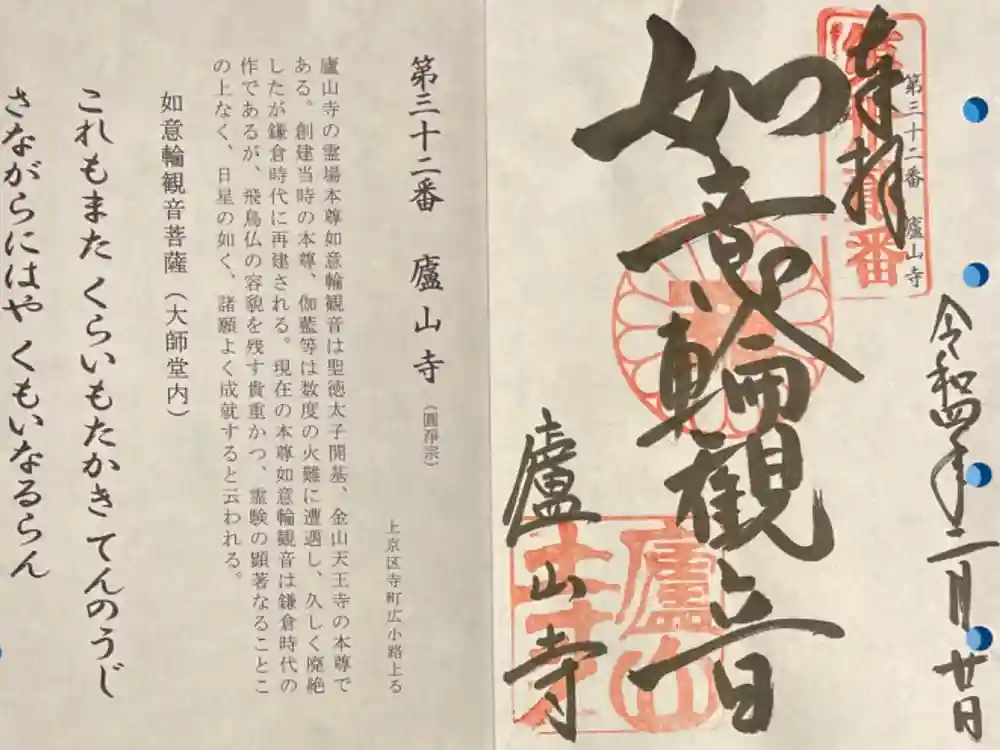 奉拝
第三十二番 廬山寺
令和四年二月廿日
如意輪観音
廬山寺
廬山
第三十二番 廬山寺 (圓浄宗)
上京区寺町広小路上る
廬山寺の霊場本尊如意輪観音は聖徳太子開基、金山天王寺の本尊で
ある。創建当時の本尊、伽藍等は数度の火難に遭遇し、久しく廃絶
したが鎌倉時代に再建される。現在の本尊如意輪観音は鎌倉時代の
作であるが、飛鳥仏の容貌を残す貴重かつ、霊験の顕著なることこ
の上なく、日星の如く、諸願よく成就すると云われる。
如意輪観音菩薩(大師堂内)
これもまた くらいもたかき てんのうじ
さながらにはや くもいなるらん